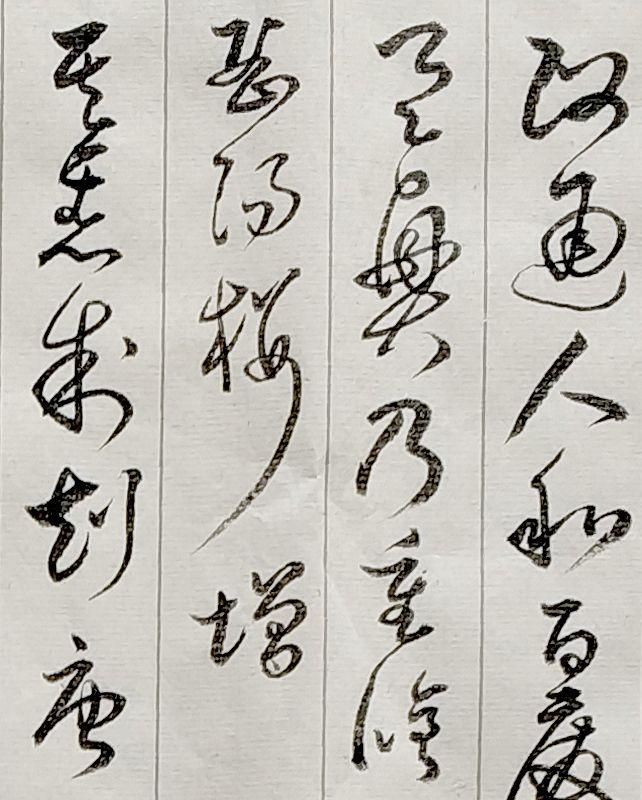 政通人和百廢
具興乃重修
岳陽樓增
其舊制刻唐